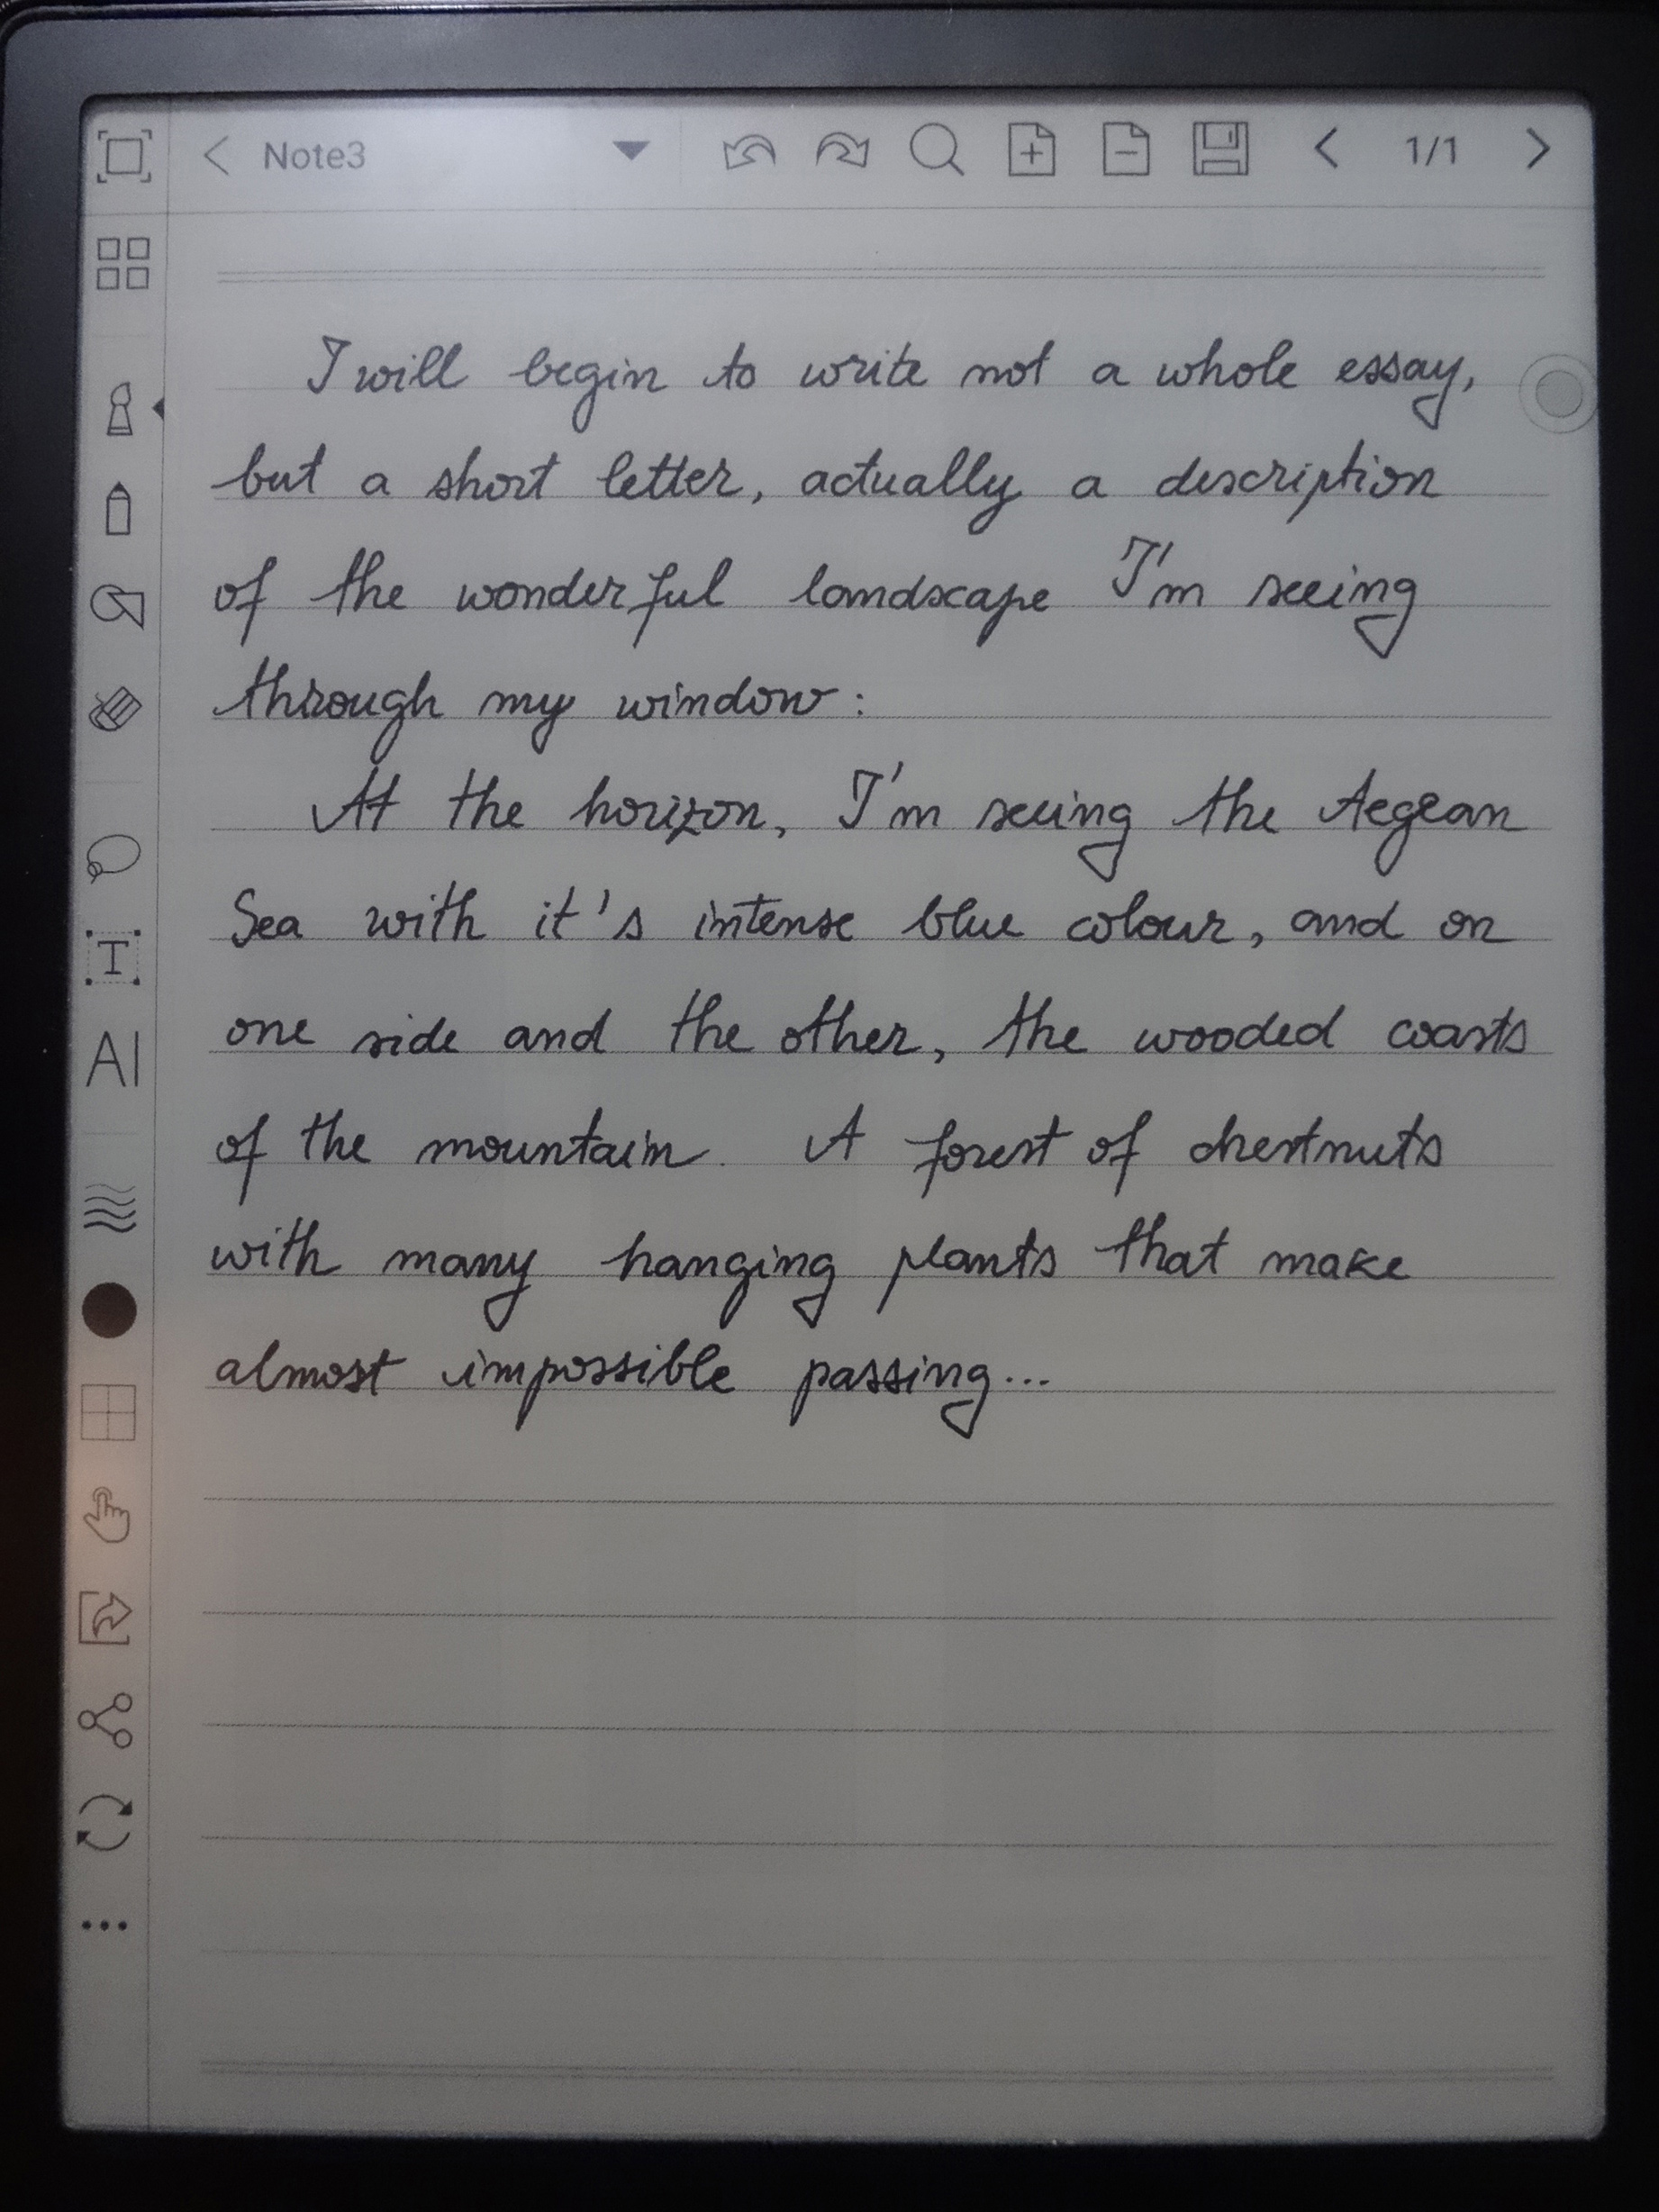 Note3 1/1
I will begin to write not a whole essay,
but a short letter, actually a description
of the wonderful landscape I'm seeing
through my window:
At the horizon, I'm seeing the Aegean
Sea with it's intense blue colour, and on
one side and the other, the wooded coasts
of the mountain. A forest of chestnuts
with many hanging plants that make
almost impossible passing...
T
AI